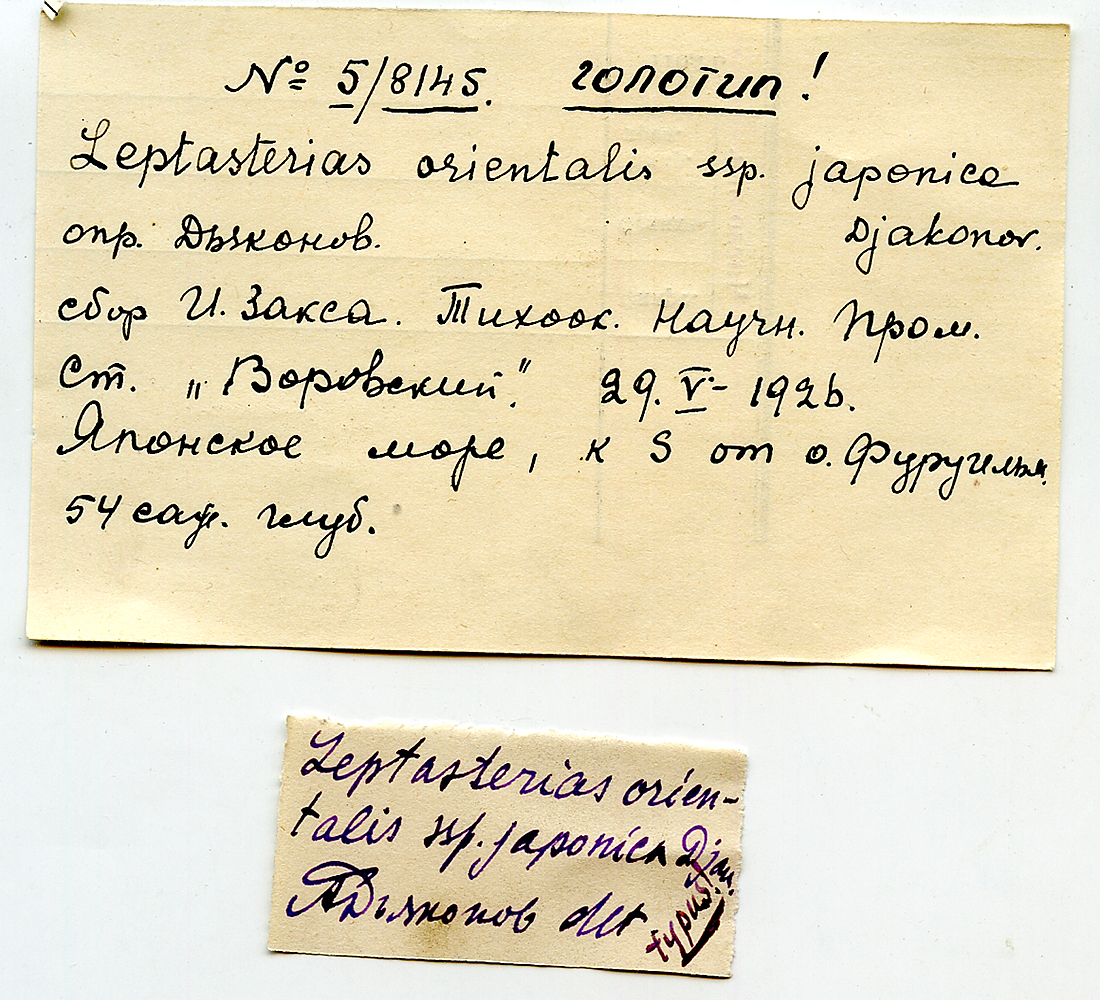 № 5/8145. голотип!
Leptasterias orientalis ssp. japonica
опр. Дьяконов. Djakonov.
сбор И. Закса. Тихоок. Научн. Пром.
Ст. „Воровский". 29. V - 1926.
Японское море, к S от о. Фуругельм.
54 саж. глуб.
Leptasterias orien-
talis ssp. japonica Djak.
АДьяконов det
typus